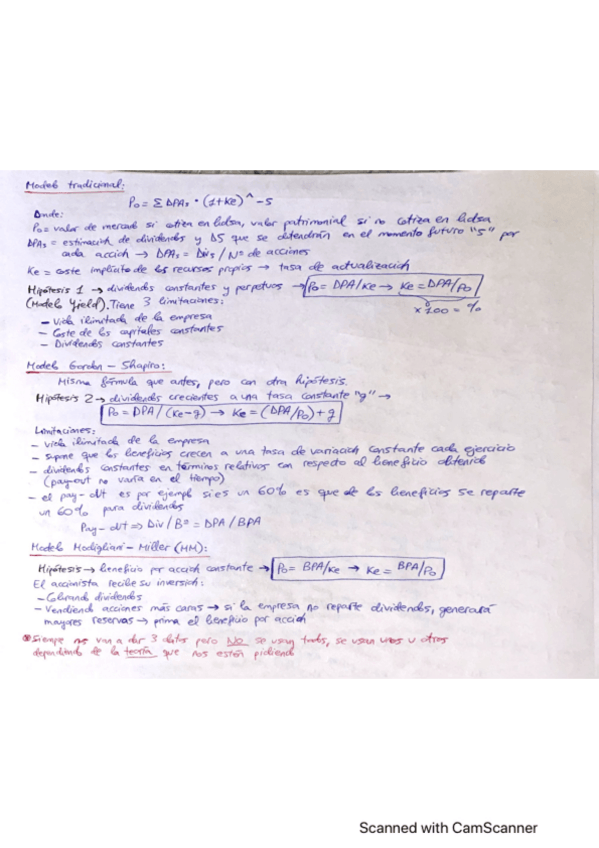 Modelo tradicional:
P₀ = Σ DPAₛ · (1+Ke)^-s
Donde:
P₀= valor de mercado si cotiza en bolsa, valor patrimonial si no cotiza en bolsa
DPAₛ = estimación de dividendos y DS que se obtendrán en el momento futuro "s" por
cada acción → DPAₛ = Divₛ / Nº de acciones
Ke = coste implícito de los recursos propios → tasa de actualización
Hipótesis 1 → dividendos constantes y perpetuos → P₀ = DPA/Ke → Ke = DPA/P₀
(Modelo Yield). Tiene 3 limitaciones:
x 100 = %
- Vida ilimitada de la empresa
- Coste de los capitales constantes
- Dividendos constantes
Modelo Gordon - Shapiro:
Misma fórmula que antes, pero con otra hipótesis.
Hipótesis 2 → dividendos crecientes a una tasa constante "g" →
P₀ = DPA / (Ke-g) → Ke = (DPA/P₀) + g
Limitaciones:
- vida ilimitada de la empresa
- supone que los beneficios crecen a una tasa de variación constante cada ejercicio
- dividendos constantes en términos relativos con respecto al beneficio obtenido
(pay-out no varía en el tiempo)
- el pay-out es por ejemplo si es un 60% es que de los beneficios se reparte
un 60% para dividendos
Pay-out => Div / Bº = DPA / BPA
Modelo Modigliani - Miller (MM):
Hipótesis → beneficio por acción constante → P₀ = BPA/Ke → Ke = BPA/P₀
El accionista recibe su inversión:
- Cobrando dividendos
- Vendiendo acciones más caras → si la empresa no reparte dividendos, generará
mayores reservas → prima el beneficio por acción
Siempre nos van a dar 3 datos pero NO se usan todos, se usan unos u otros
dependiendo de la teoría que nos estén pidiendo
Scanned with CamScanner